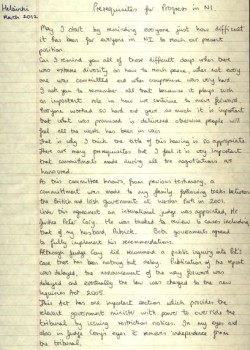 Helsinki
March 2012
Prerequisites for Progress in N.I.
May I start by reminding everyone just how difficult
it has been for everyone in N.I. to reach our present
position.
Can I remind you all of those difficult days when there
was extreme diversity on how to reach peace, when not every
one was committed and when compromise was very hard.
I ask you to remember all that because it plays such
an important role in how we continue to move forward.
Everyone worked so hard and gave so much it is important
that what was promised is delivered otherwise people will
feel all the work has been in vain.
That is why I think the title of this hearing is so appropriate.
There are many prerequisites but I feel it is very important
that commitments made during all the negotiations are
honoured.
As this committee knows, from previous testimony, a
commitment was made to my family following talks between
the British and Irish governments at Weston Park in 2001.
Under this agreement an international judge was appointed, the
Judge Peter Cory. He was tasked to review 6 cases including
that of my husband, Patrick. Both governments agreed
to fully implement his recommendations.
Although Judge Cory did recommend a public inquiry into Pat's
case that has been nothing but delay. Publication of the report
was delayed, the announcement of the way forward was
delayed and eventually the law was changed to the new
Inquiries Act 2005.
This Act has one important section which provides the
relevant government minister with power to override the
tribunal by issuing restriction notices. In my eyes and
also in Judge Cory's eyes it removes independence from
the tribunal.